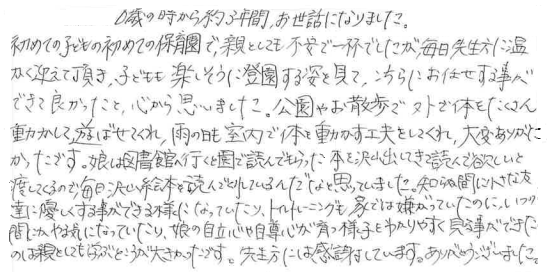 0歳の時から約3年間、お世話になりました。
初めての子どもの初めての保育園で、親としても不安で一杯でしたが、毎日先生方に温
かく迎えて頂き、子どもも楽しそうに登園する姿を見て、こちらにお任せする事が
できて良かったと、心から思いました。公園やお散歩で外で体をたくさん
動かして遊ばせてくれ、雨の日も室内で体を動かす工夫をしてくれ、大変ありがた
かったです。娘は図書館へ行くと園で読んでもらった本を沢山出してきて読んで欲しいと
渡してくるので、毎日沢山絵本を読んでくれているんだなと思っていました。知らぬ間に小さな友
達に優しくする事ができる様になっていたり、トイレトレーニングも家では嫌がっていたのに、いつの
間にかやる気になっていたり、娘の自立心や自尊心が育つ様子をわかりやすく見る事ができた
のは親としても学ぶところが大きかったです。先生方には感謝しています。ありがとうございました。